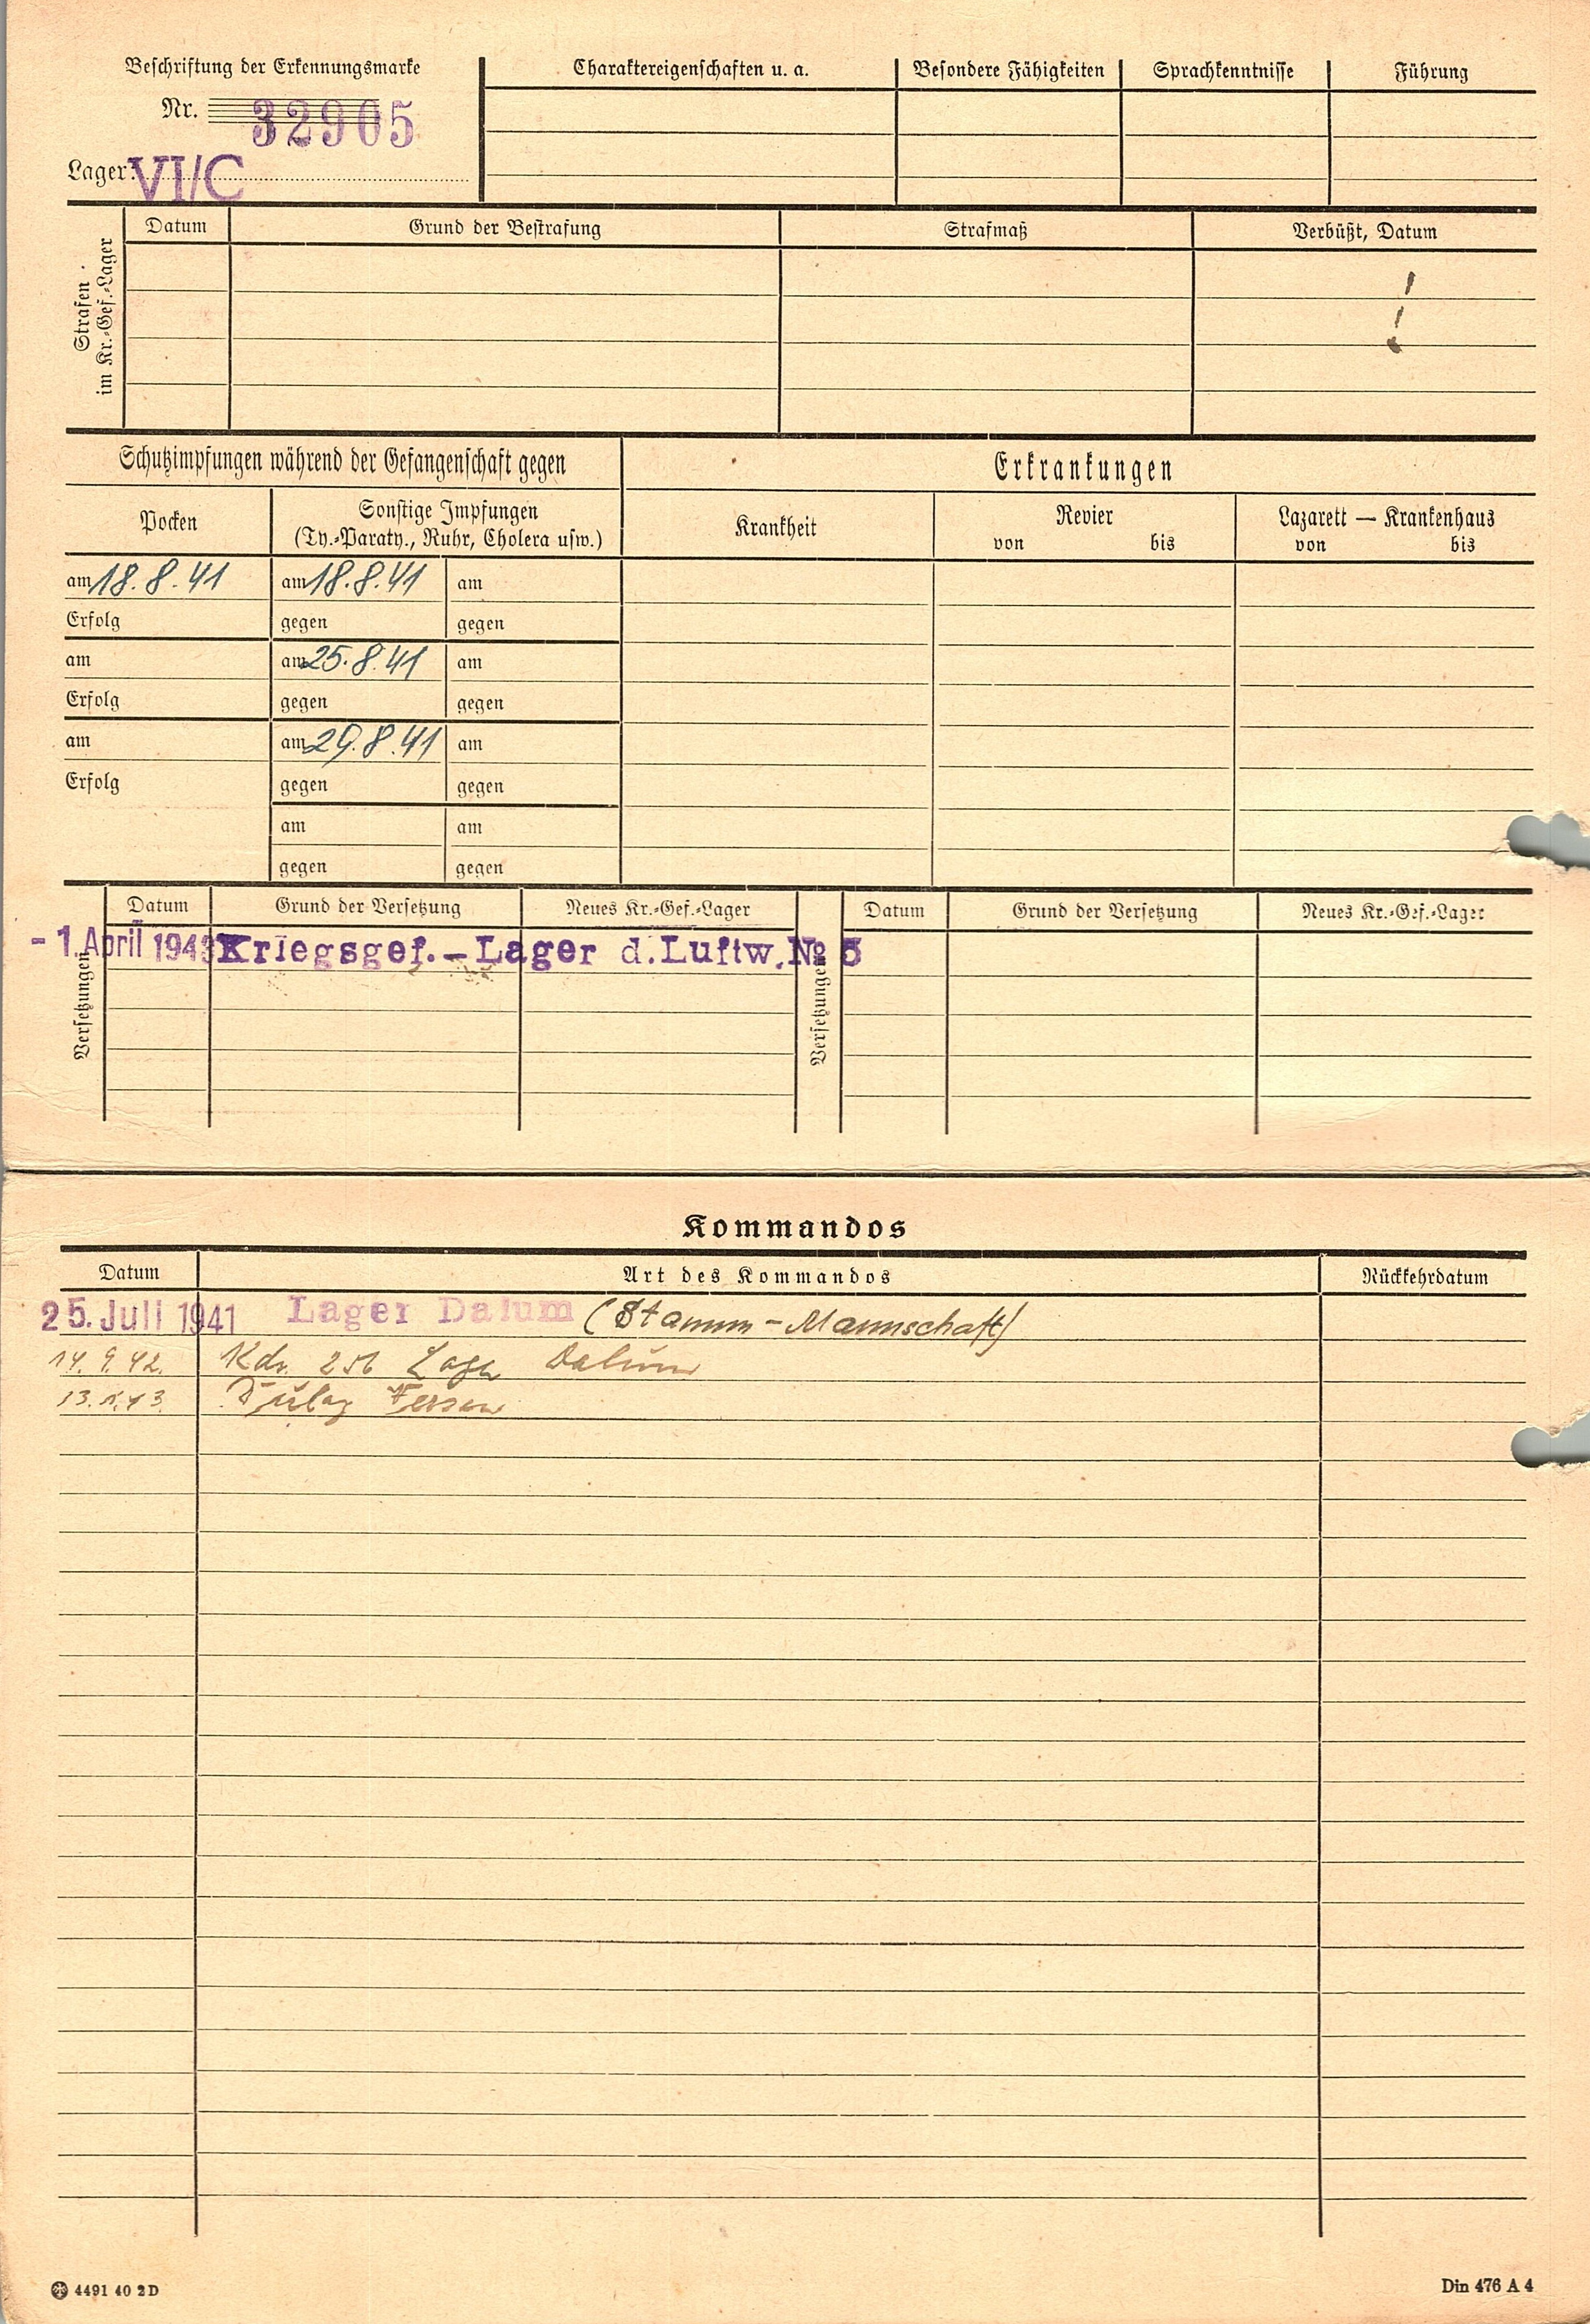 Beschriftung der Erkennungsmarke
Nr. 32905
Lager: VI/C
Charaktereigenschaften u. a. Besondere Fähigkeiten Sprachkenntnisse Führung
Strafen im Kr.-Gef.-Lager
Datum Grund der Bestrafung Strafmaß Verbüßt, Datum
Schutzimpfungen während der Gefangenschaft gegen Erkrankungen
Pocken Sonstige Impfungen Krankheit Revier Lazarett — Krankenhaus
(Ty.-Paraty., Ruhr, Cholera usw.) von bis von bis
am 18.8.41 am 18.8.41 am
Erfolg gegen gegen
am am 25.8.41 am
Erfolg gegen gegen
am am 29.8.41 am
Erfolg gegen gegen
am am
gegen gegen
Versetzungen Datum Grund der Versetzung Neues Kr.-Gef.-Lager Versetzungen Datum Grund der Versetzung Neues Kr.-Gef.-Lager
- 1. April 1943 Kriegsgef.-Lager d. Luftw. No 5
Kommandos
Datum Art des Kommandos Rückkehrdatum
25. Juli 1941 Lager Dalum (Stamm-Mannschaft)
14.9.42. Kdo. 256 Lager Dalum
Dulag Fersen
4491 40 2D
Din 476 A 4